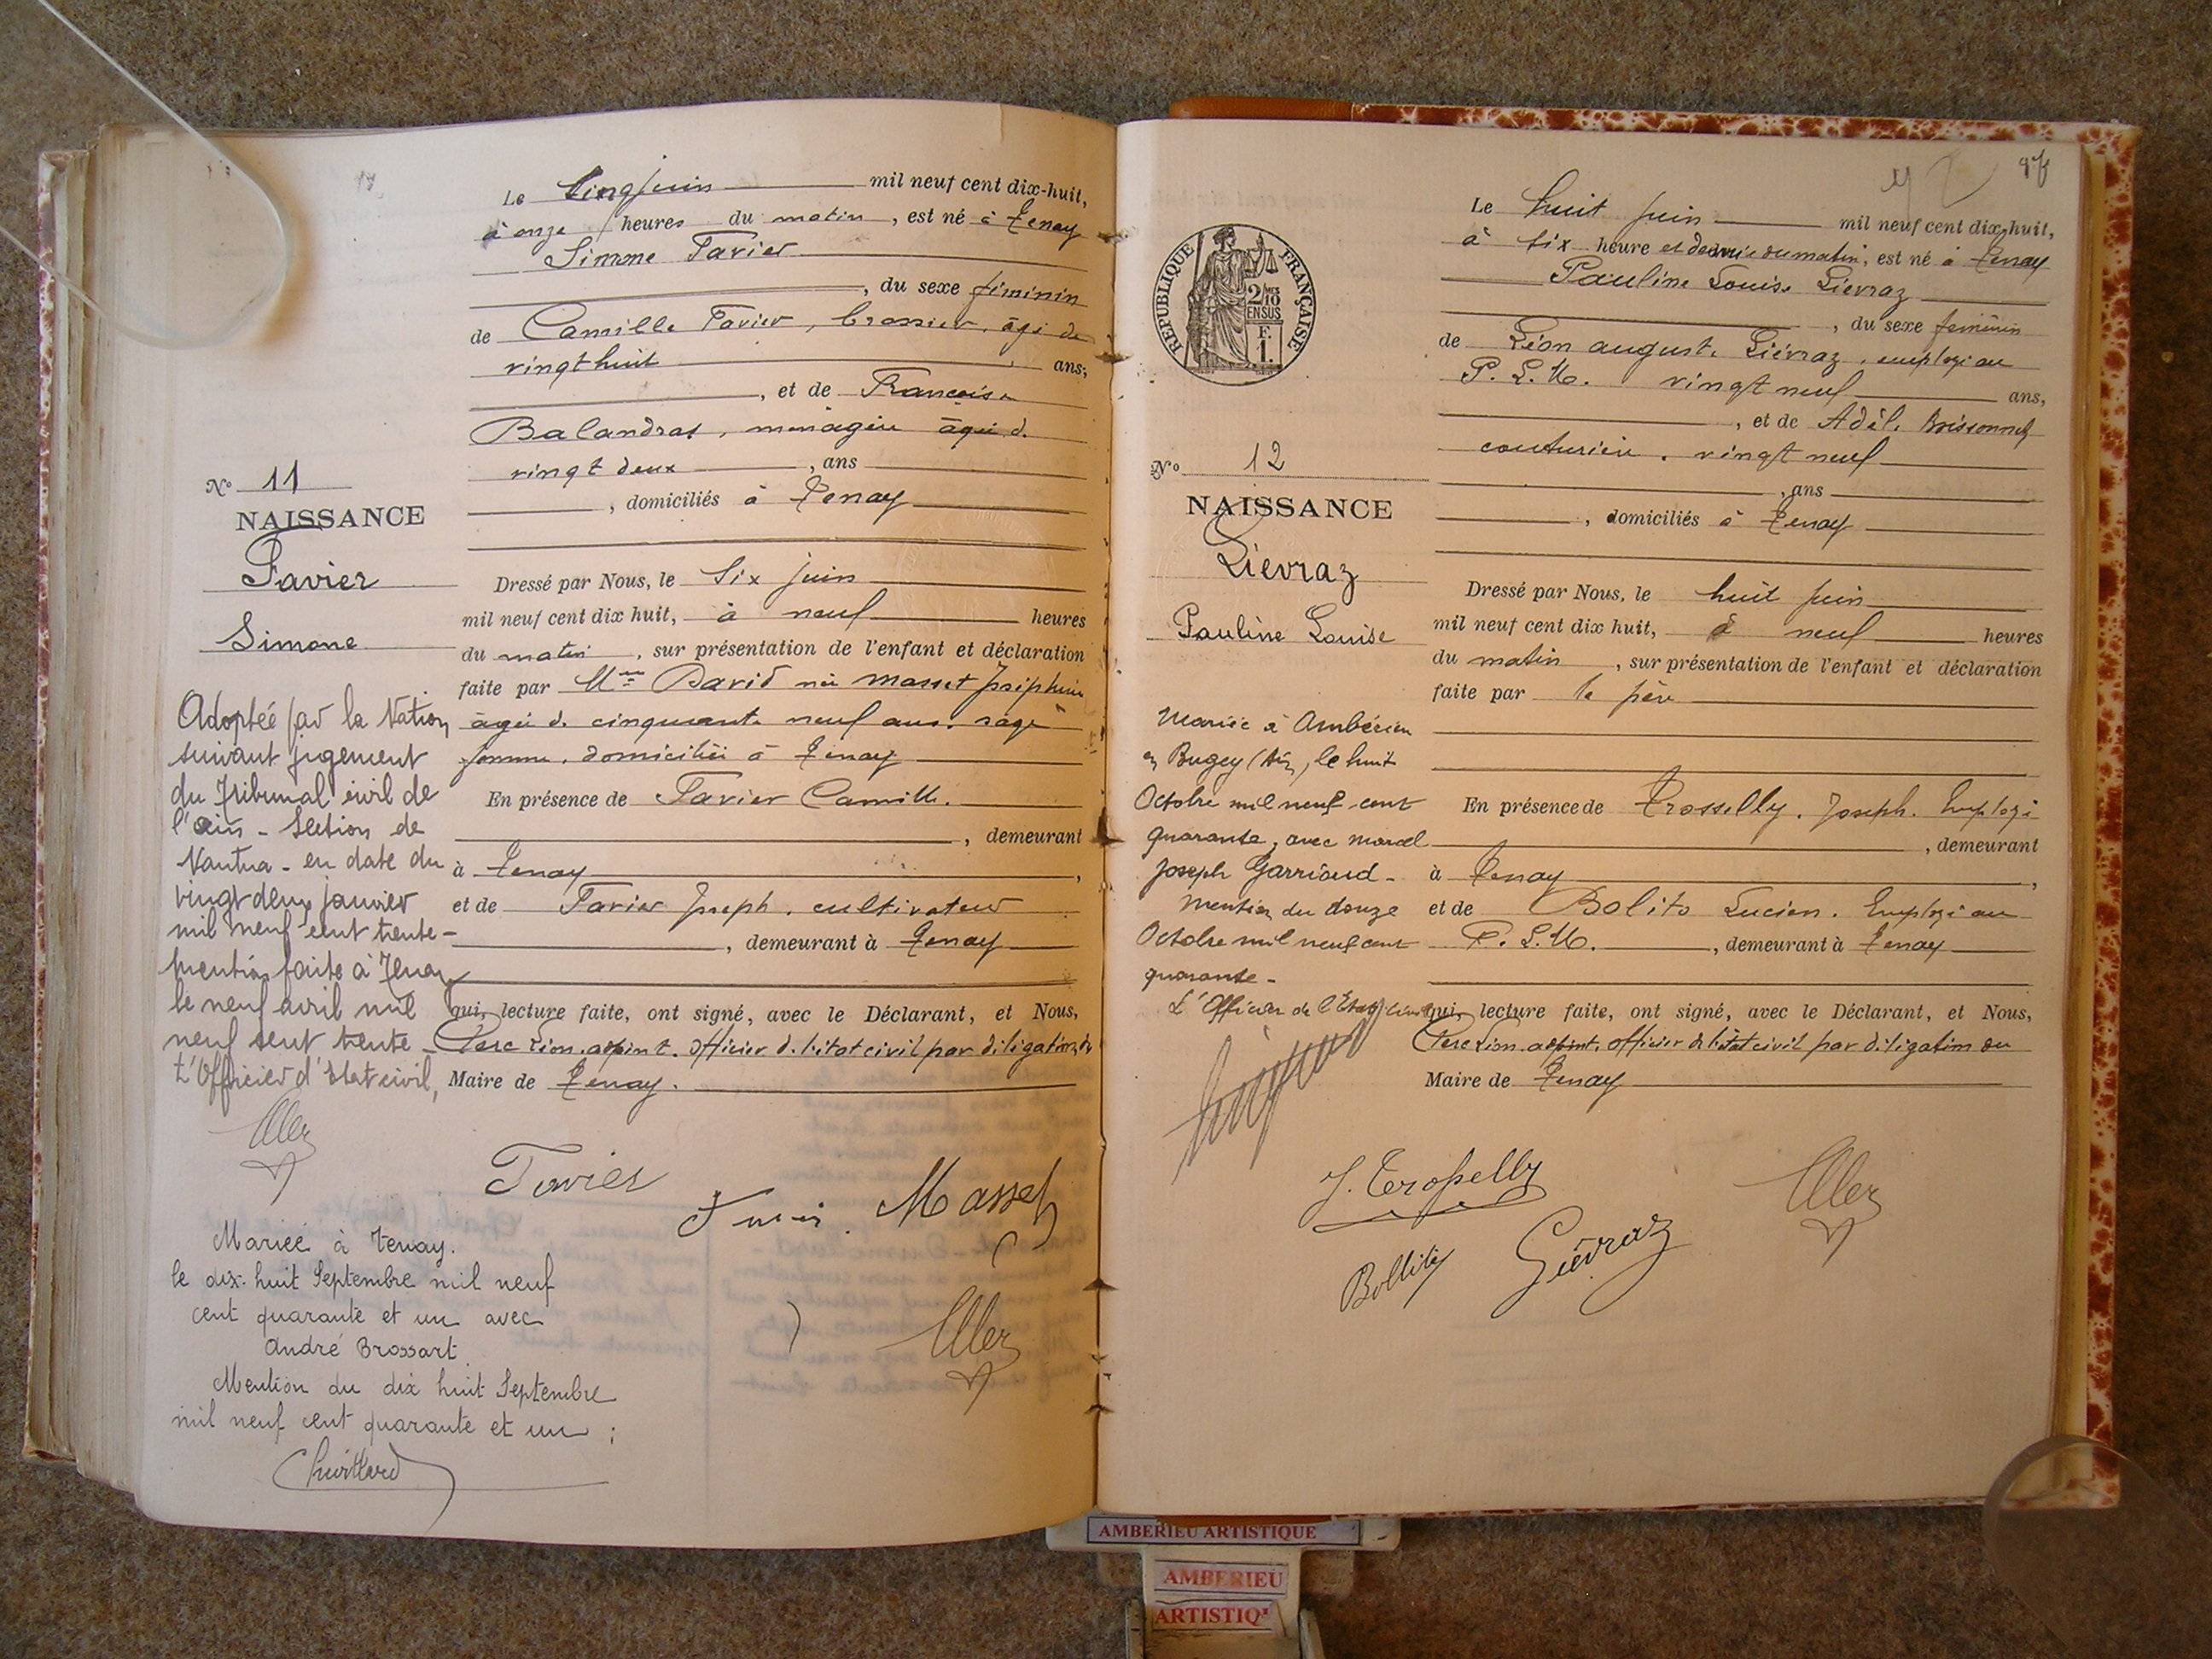 Le Cinq juin mil neuf cent dix-huit,
à onze heures du matin, est né à Tenay
Simone Favier
, du sexe féminin
de Camille Favier, âgé de
vingt huit ans,
, et de Françoise
Balandras, ménagère âgée de
vingt deux, ans
, domiciliés à Tenay
No 11
NAISSANCE
Favier
Simone
Dressé par Nous, le Six juin
mil neuf cent dix huit, à neuf heures
du matin, sur présentation de l'enfant et déclaration
faite par Mme David née Masset Joséphine
âgée de cinquante neuf ans, sage
femme, domiciliée à Tenay
En présence de Favier Camille.
, demeurant
à Tenay,
et de Favier Joseph, cultivateur
, demeurant à Tenay
qui, lecture faite, ont signé, avec le Déclarant, et Nous,
adjoint, officier de l'état civil par délégation du
Maire de Tenay.
Adoptée par la Nation
suivant jugement
du Tribunal civil de
l'Ain - Section de
Nantua - en date du
vingt deux janvier
mil neuf cent trente -
Mention faite à Tenay
le neuf avril mil
neuf cent trente -
L'Officier d'Etat civil,
Favier
Masset
Mariée à Tenay.
le dix-huit Septembre mil neuf
cent quarante et un avec
André Brossart
Mention du dix huit Septembre
mil neuf cent quarante et un ;
Le huit juin mil neuf cent dix-huit,
à six heure et demie du matin, est né à Tenay
Pauline Louise Liévraz
, du sexe féminin
de Léon Auguste Liévraz, employé au
P. L. M. vingt neuf ans,
, et de Adèle
couturière, vingt neuf
, ans
, domiciliés à Tenay
REPUBLIQUE FRANÇAISE
2/10 EN SUS
F. 1.
No 12
NAISSANCE
Liévraz
Pauline Louise
Dressé par Nous, le huit juin
mil neuf cent dix huit, à neuf heures
du matin, sur présentation de l'enfant et déclaration
faite par le père
En présence de Trosselly, Joseph. Employé
, demeurant
à Tenay,
et de Lucien. Employé au
P. L. M., demeurant à Tenay
qui, lecture faite, ont signé, avec le Déclarant, et Nous,
adjoint, officier de l'état civil par délégation du
Maire de Tenay
Mariée à Ambérieu
en Bugey (Ain), le huit
Octobre mil neuf cent
quarante, avec Marcel
Joseph Garriaud -
Mention du douze
Octobre mil neuf cent
quarante -
L'Officier de l'Etat civil
J. Trosselly
Liévraz
AMBERIEU ARTISTIQUE
AMBERIEU
ARTISTIQ